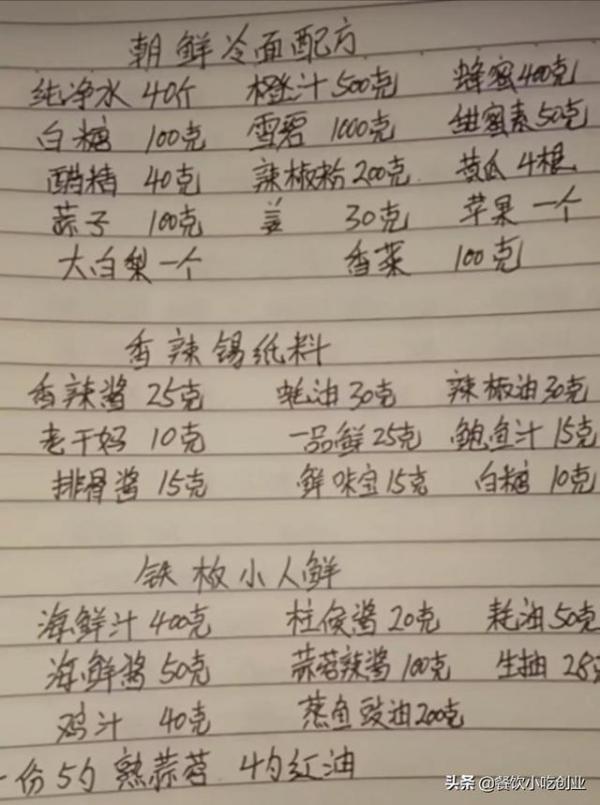 朝鲜冷面配方
纯净水 40斤 橙汁500克 蜂蜜400克
白糖 100克 雪碧 1000克 甜蜜素50克
醋精 40克 辣椒粉200克 黄瓜4根
蒜子 100克 姜 30克 苹果一个
大白梨一个 香菜 100克
香辣锡纸料
香辣酱 25克 蚝油30克 辣椒油30克
老干妈 10克 一品鲜25克 鲍鱼汁15克
排骨酱 15克 鲜味宝15克 白糖 10克
铁板小人鲜
海鲜汁400克 柱侯酱20克 耗油50克
海鲜酱50克 蒜蓉辣酱100克 生抽 28克
鸡汁 40克 蒸鱼豉油200克
一份5勺 熟蒜蓉 4勺红油
头条 @餐饮小吃创业